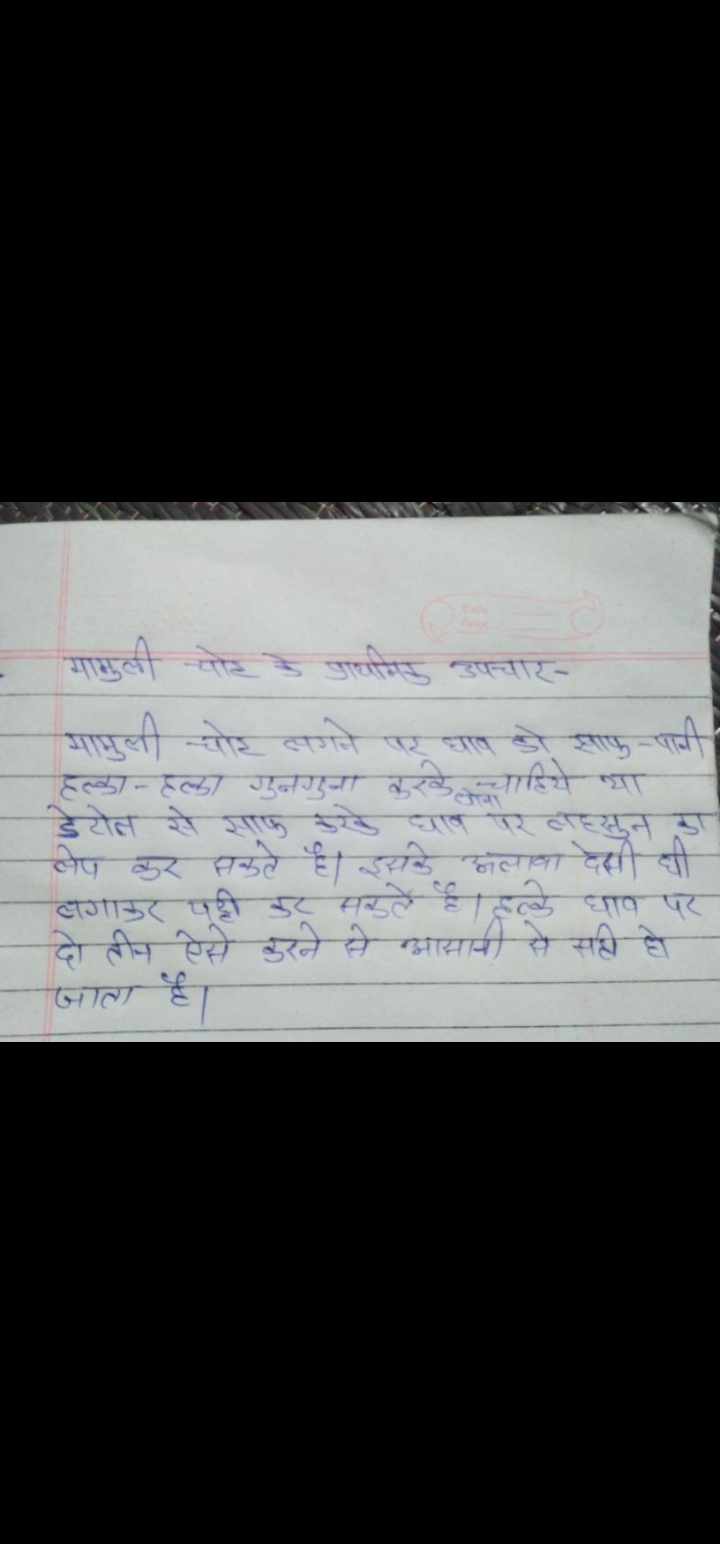 मामुली चोट के प्राथमिक उपचार-
मामुली चोट लगने पर घाव को साफ-पानी
हल्का-हल्का गुनगुना करके धोना चाहिये या
डेटोल से साफ करके घाव पर लहसुन का
लेप कर सकते है। इसके अलावा देसी घी
लगाकर पट्टी कर सकते है। हल्के घाव पर
दो तीन ऐसे करने से आसानी से सही हो
जाता है।